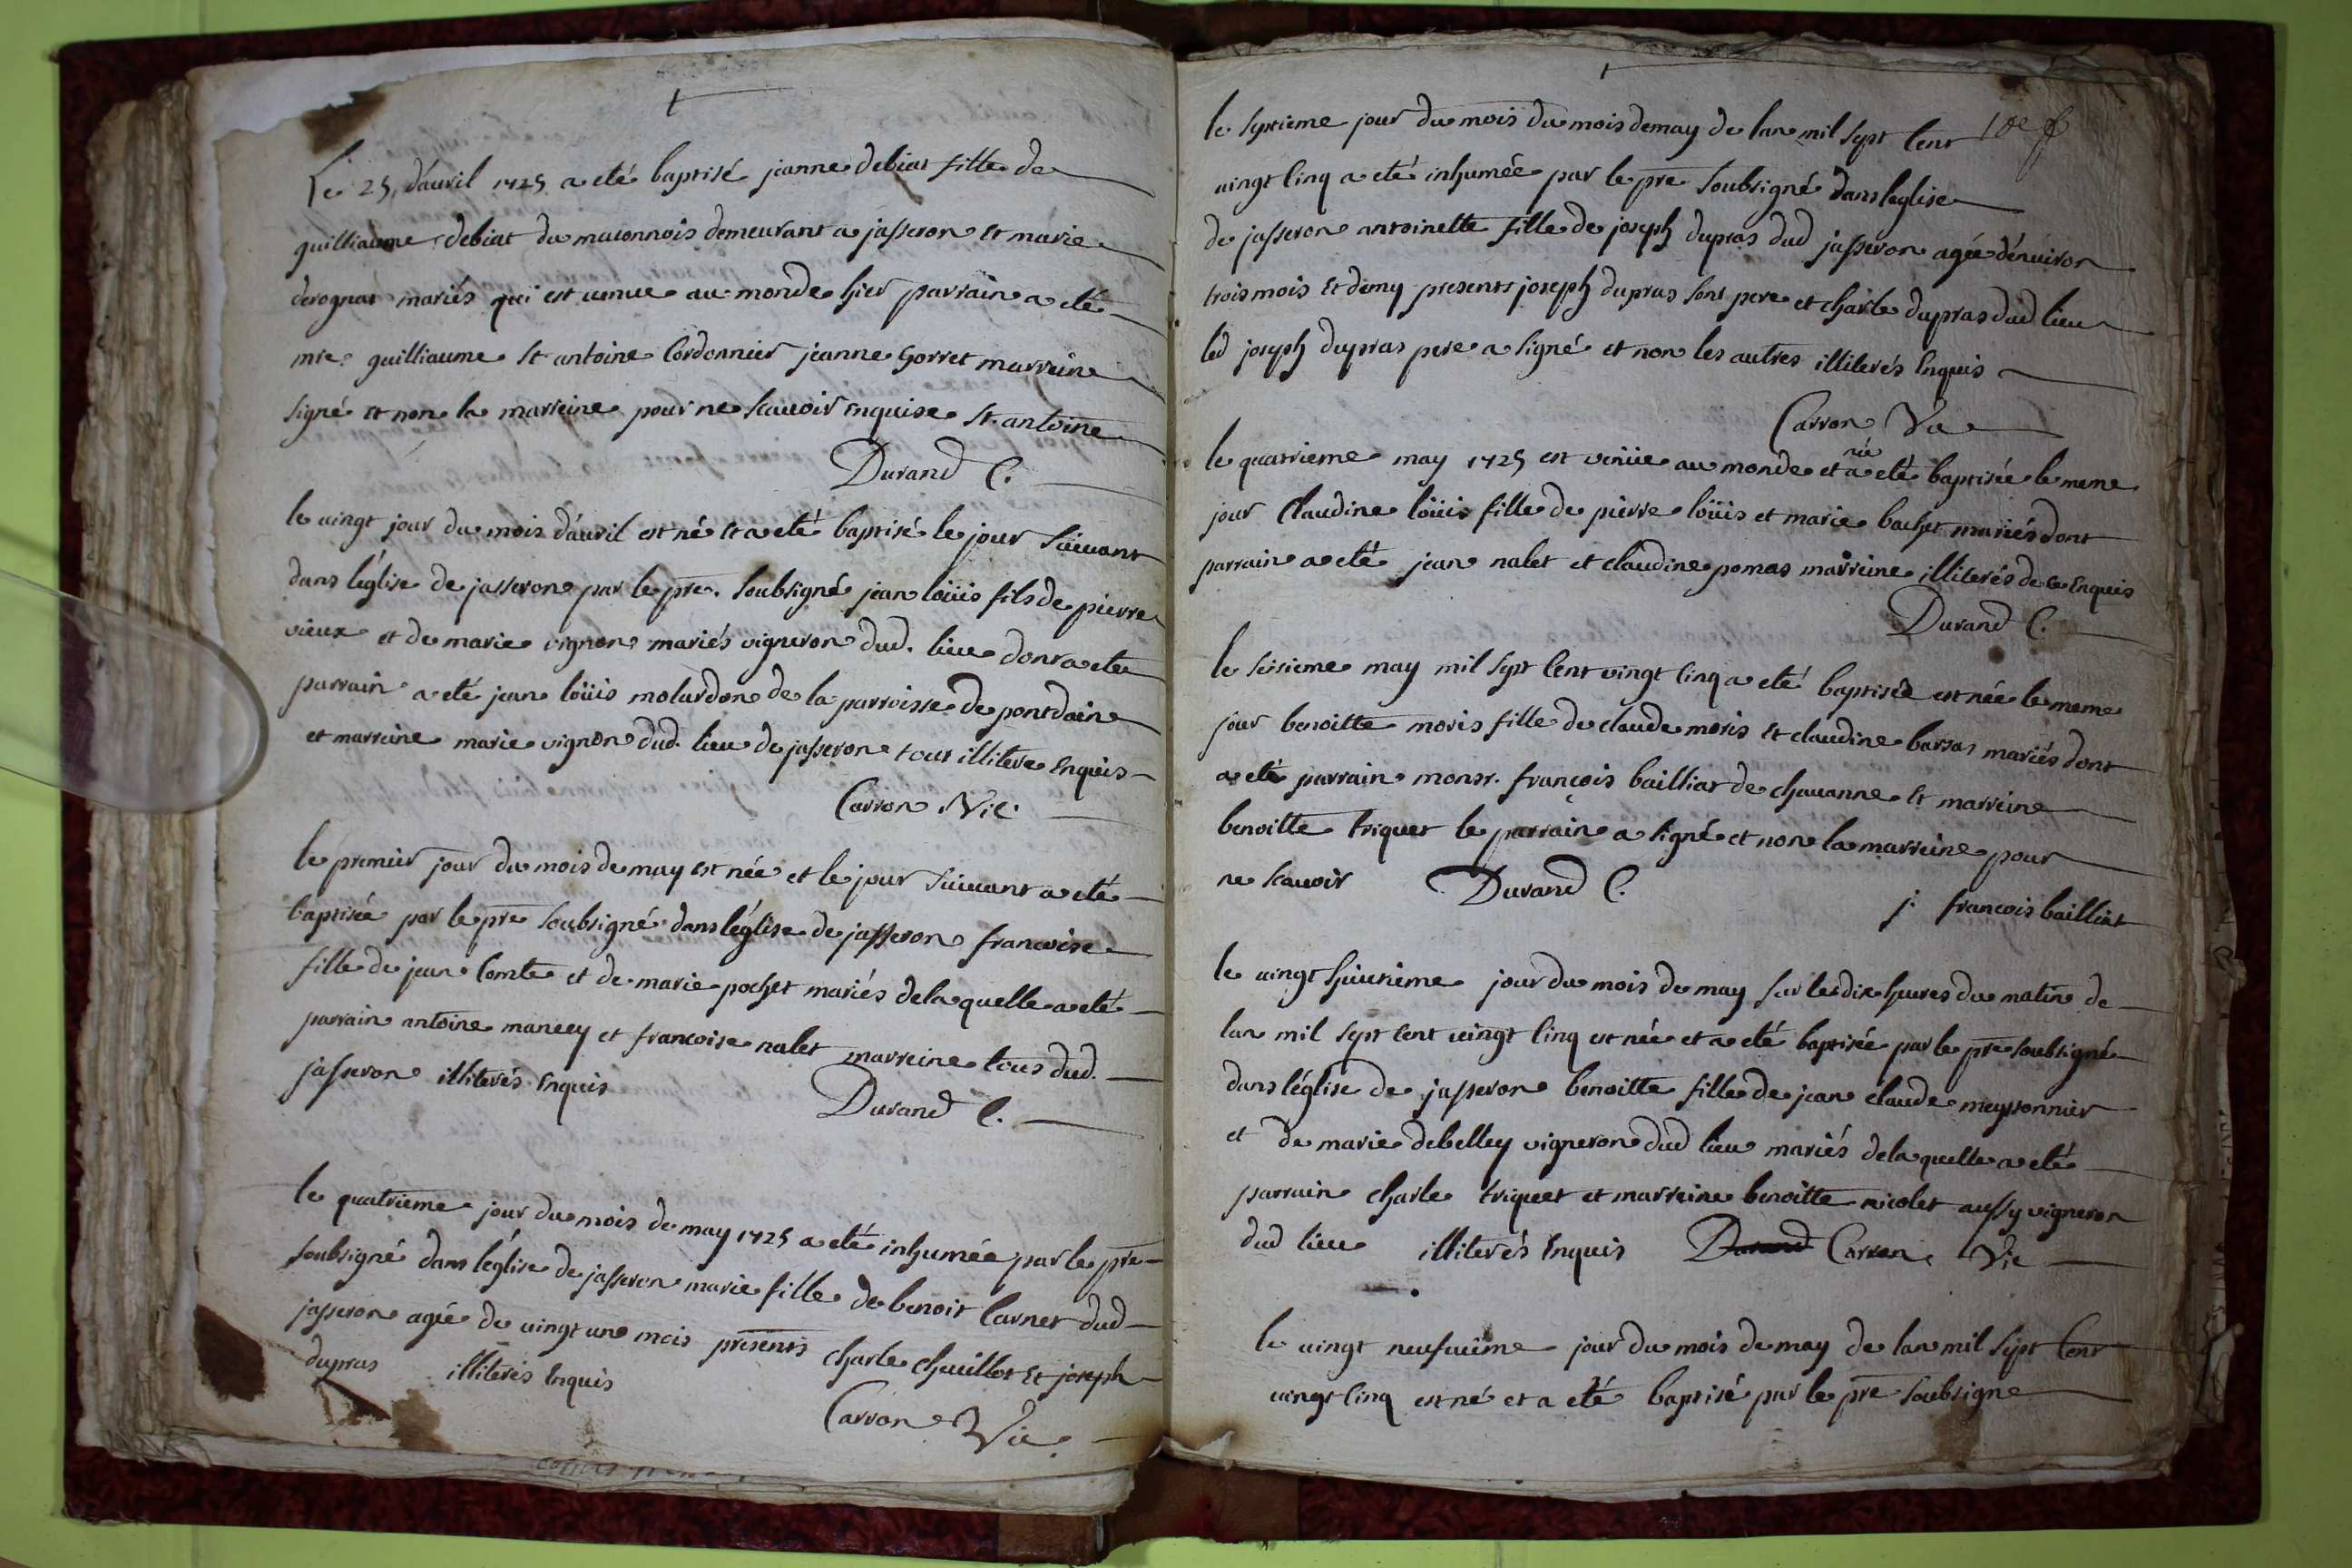 Le 25 d'auril 1725 a eté baptisé jeanne debiat fille de
guilliaume debiat du maconnois demeurant a jasseron et marie
derognat mariés qui est venue au monde hier parrain a eté
mre guilliaume st antoine Cordonnier jeanne Gorret marreine
signé et non la marreine pour ne scauoir enquise St. antoine
Durand C.
le uingt jour du mois d'auril est né et a eté baptisé le jour suiuant
dans léglise de jasseron par le pre. soubsigné jean loüis fils de pierre
vieux et de marie vignon mariés vigneron dud. lieu dont a eté
parrain a eté jean loüis molardon de la parroisse de pontdain
et marreine marie vignon dud. lieu de jasseron tous illitere enquis
Carron Vic.
le premier jour du mois de may est née et le jour suiuant a eté
baptisée par le pre soubsigné dans léglise de jasseron francoise
fille de jean Comte et de marie pochet mariés dela quelle a eté
parrain antoine maney et francoise nalet marreine tous dud.
jasseron illiterés enquis
Durand C.
le quatrieme jour du mois de may 1725 a eté inhumée par le pre
soubsigné dans léglise de jasseron marie fille de benoit Carnet dud
jasseron agée de uingt un mois presents charle chauillot et joseph
dupras illiterés enquis
Carron Vic.
le septieme jour du mois du mois de may de lan mil sept cent
uingt cinq a eté inhumée par le pre soubsigné dans leglise
de jasseron antoinette fille de joseph dupras dud jasseron agée dénuiron
trois mois et demy presents joseph dupras sont pere et charle dupras dud lieu
led joseph dupras pere a signé et non les autres illiterés enquis
Carron Vic
le quatrieme may 1725 est venüe au monde et a eté baptisée le meme
jour Claudine loüis fille de pierre loüis et marie bachet mariés dont
parrain a eté jean nalet et claudine pomas marreine illiterés de ce enquis
Durand C.
le seisieme may mil sept cent vingt cinq a eté baptisée est née le meme
jour benoitte moris fille de claude moris et claudine barsas mariés dont
a eté parrain monsr. françois bailliat de chauanne et marreine
benoitte triquet le parrain a signé et non la marreine pour
ne scauoir Durand C.
j. francois bailliat
le uingt huictieme jour du mois de may sur les dix heures du matin de
lan mil sept cent uingt cinq est née et a eté baptisée par le pre soubsigné
dans léglise de jasseron benoitte fille de jean claude meyssonnier
et de marie debelley vigneron dud lieu mariés dela quelle a eté
parrain charle triquet et marreine benoitte nicolet aussy vigneron
dud lieu illiterés enquis Durand Carron Vic
le uingt neufuiême jour du mois de may de lan mil sept Cent
uingt cinq est né et a eté baptisé par le pre soubsigne